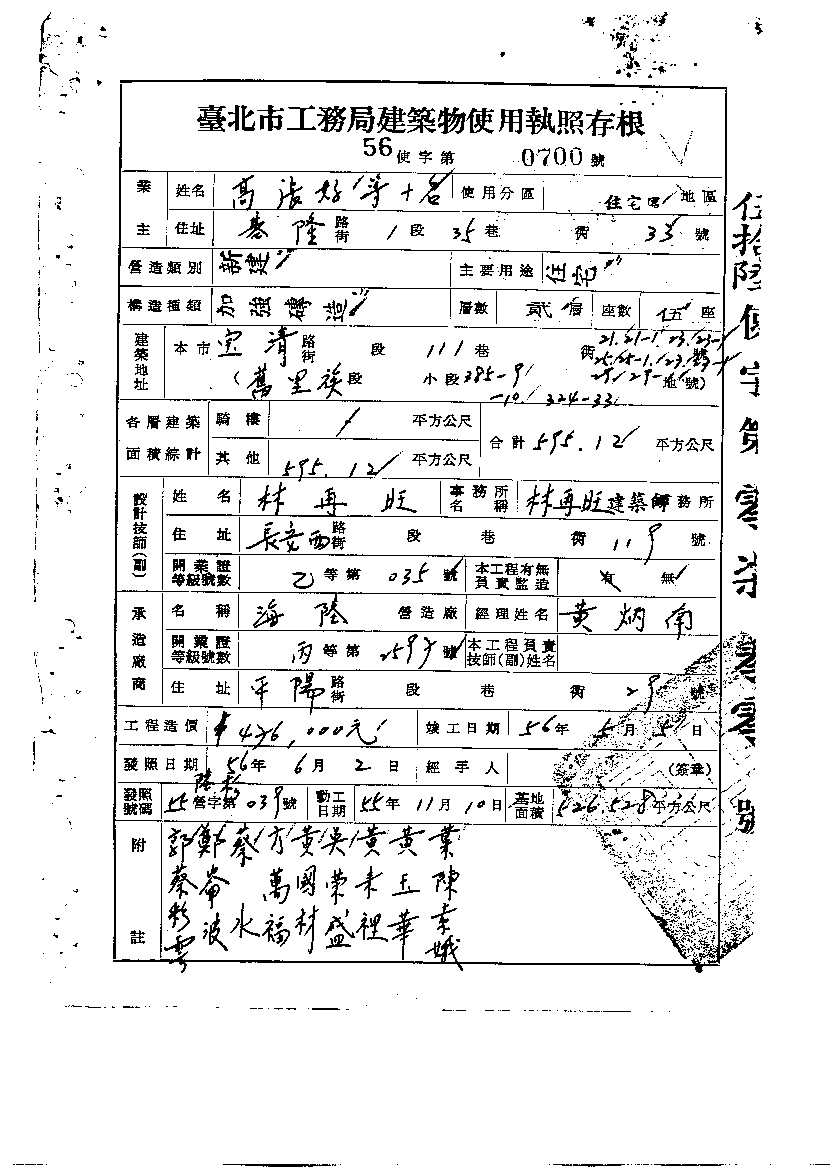 臺北市工務局建築物使用執照存根
56使字第 0700號
業主 姓名 高張好等十名 使用分區 住宅 地區
住址 基隆 路街 1段 35巷 衖 33號
營造類別 新建 主要用途 住宅
構造種類 加強磚造 層數 貳層 座數 伍座
建築地址 本市 宝清 路街 段 111巷 衖 號
21.21-1.23.23-1
(舊里族段 小段 385-9 地號)
-10. 324-33
各層建築面積綜計 騎樓 / 平方公尺 合計 595.12 平方公尺
其他 595.12 平方公尺
設計技師(副) 姓名 林再旺 事務所名稱 林再旺建築師務所
住址 長安西 路街 段 巷 衖 119號
開業證等級號數 乙等第 035號 本工程有無負責監造 有 無
承造廠商 名稱 海陸 營造廠 經理姓名 黃炳南
開業證等級號數 丙等第 號 本工程負責技師(副)姓名
住址 平陽 路街 段 巷 衖 29號
工程造價 $ 竣工日期 56年 5月 5日
發照日期 56年 6月 2日 經手人 (簽章)
發照號碼 55營字第 039號 動工日期 55年 11月 10日 基地面積 526.528平方公尺
附註
郭蔡彩雲
鄭崙波
蔡水
方萬福
黃國材
吳榮盛
黃未裡
黃玉華
葉陳素娥
伍拾陸使字第零柒零零號